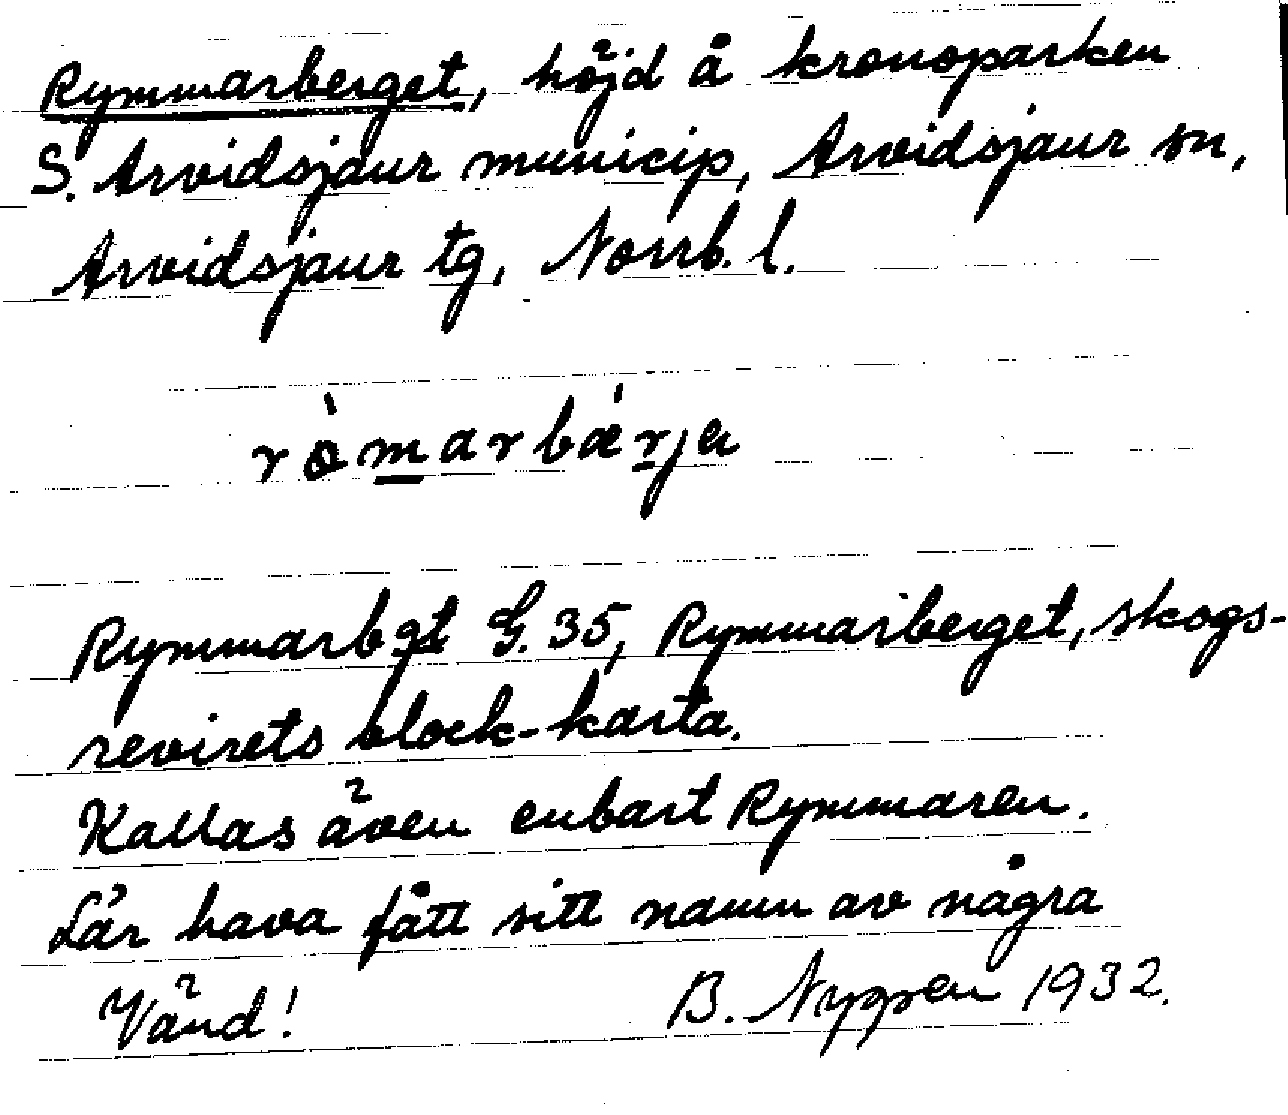 Rymmarberget, höjd å kronoparken
S. Arvidsjaur municip, Arvidsjaur sn,
Arvidsjaur tg, Norrb. l.
ròmarbǽrja
Rymmarbgt G. 35, Rymmarberget, skogs-
revirets block-karta.
Kallas även enbart Rymmaren.
Lär hava fått sitt namn av några
Vänd! B. Nygren 1932.